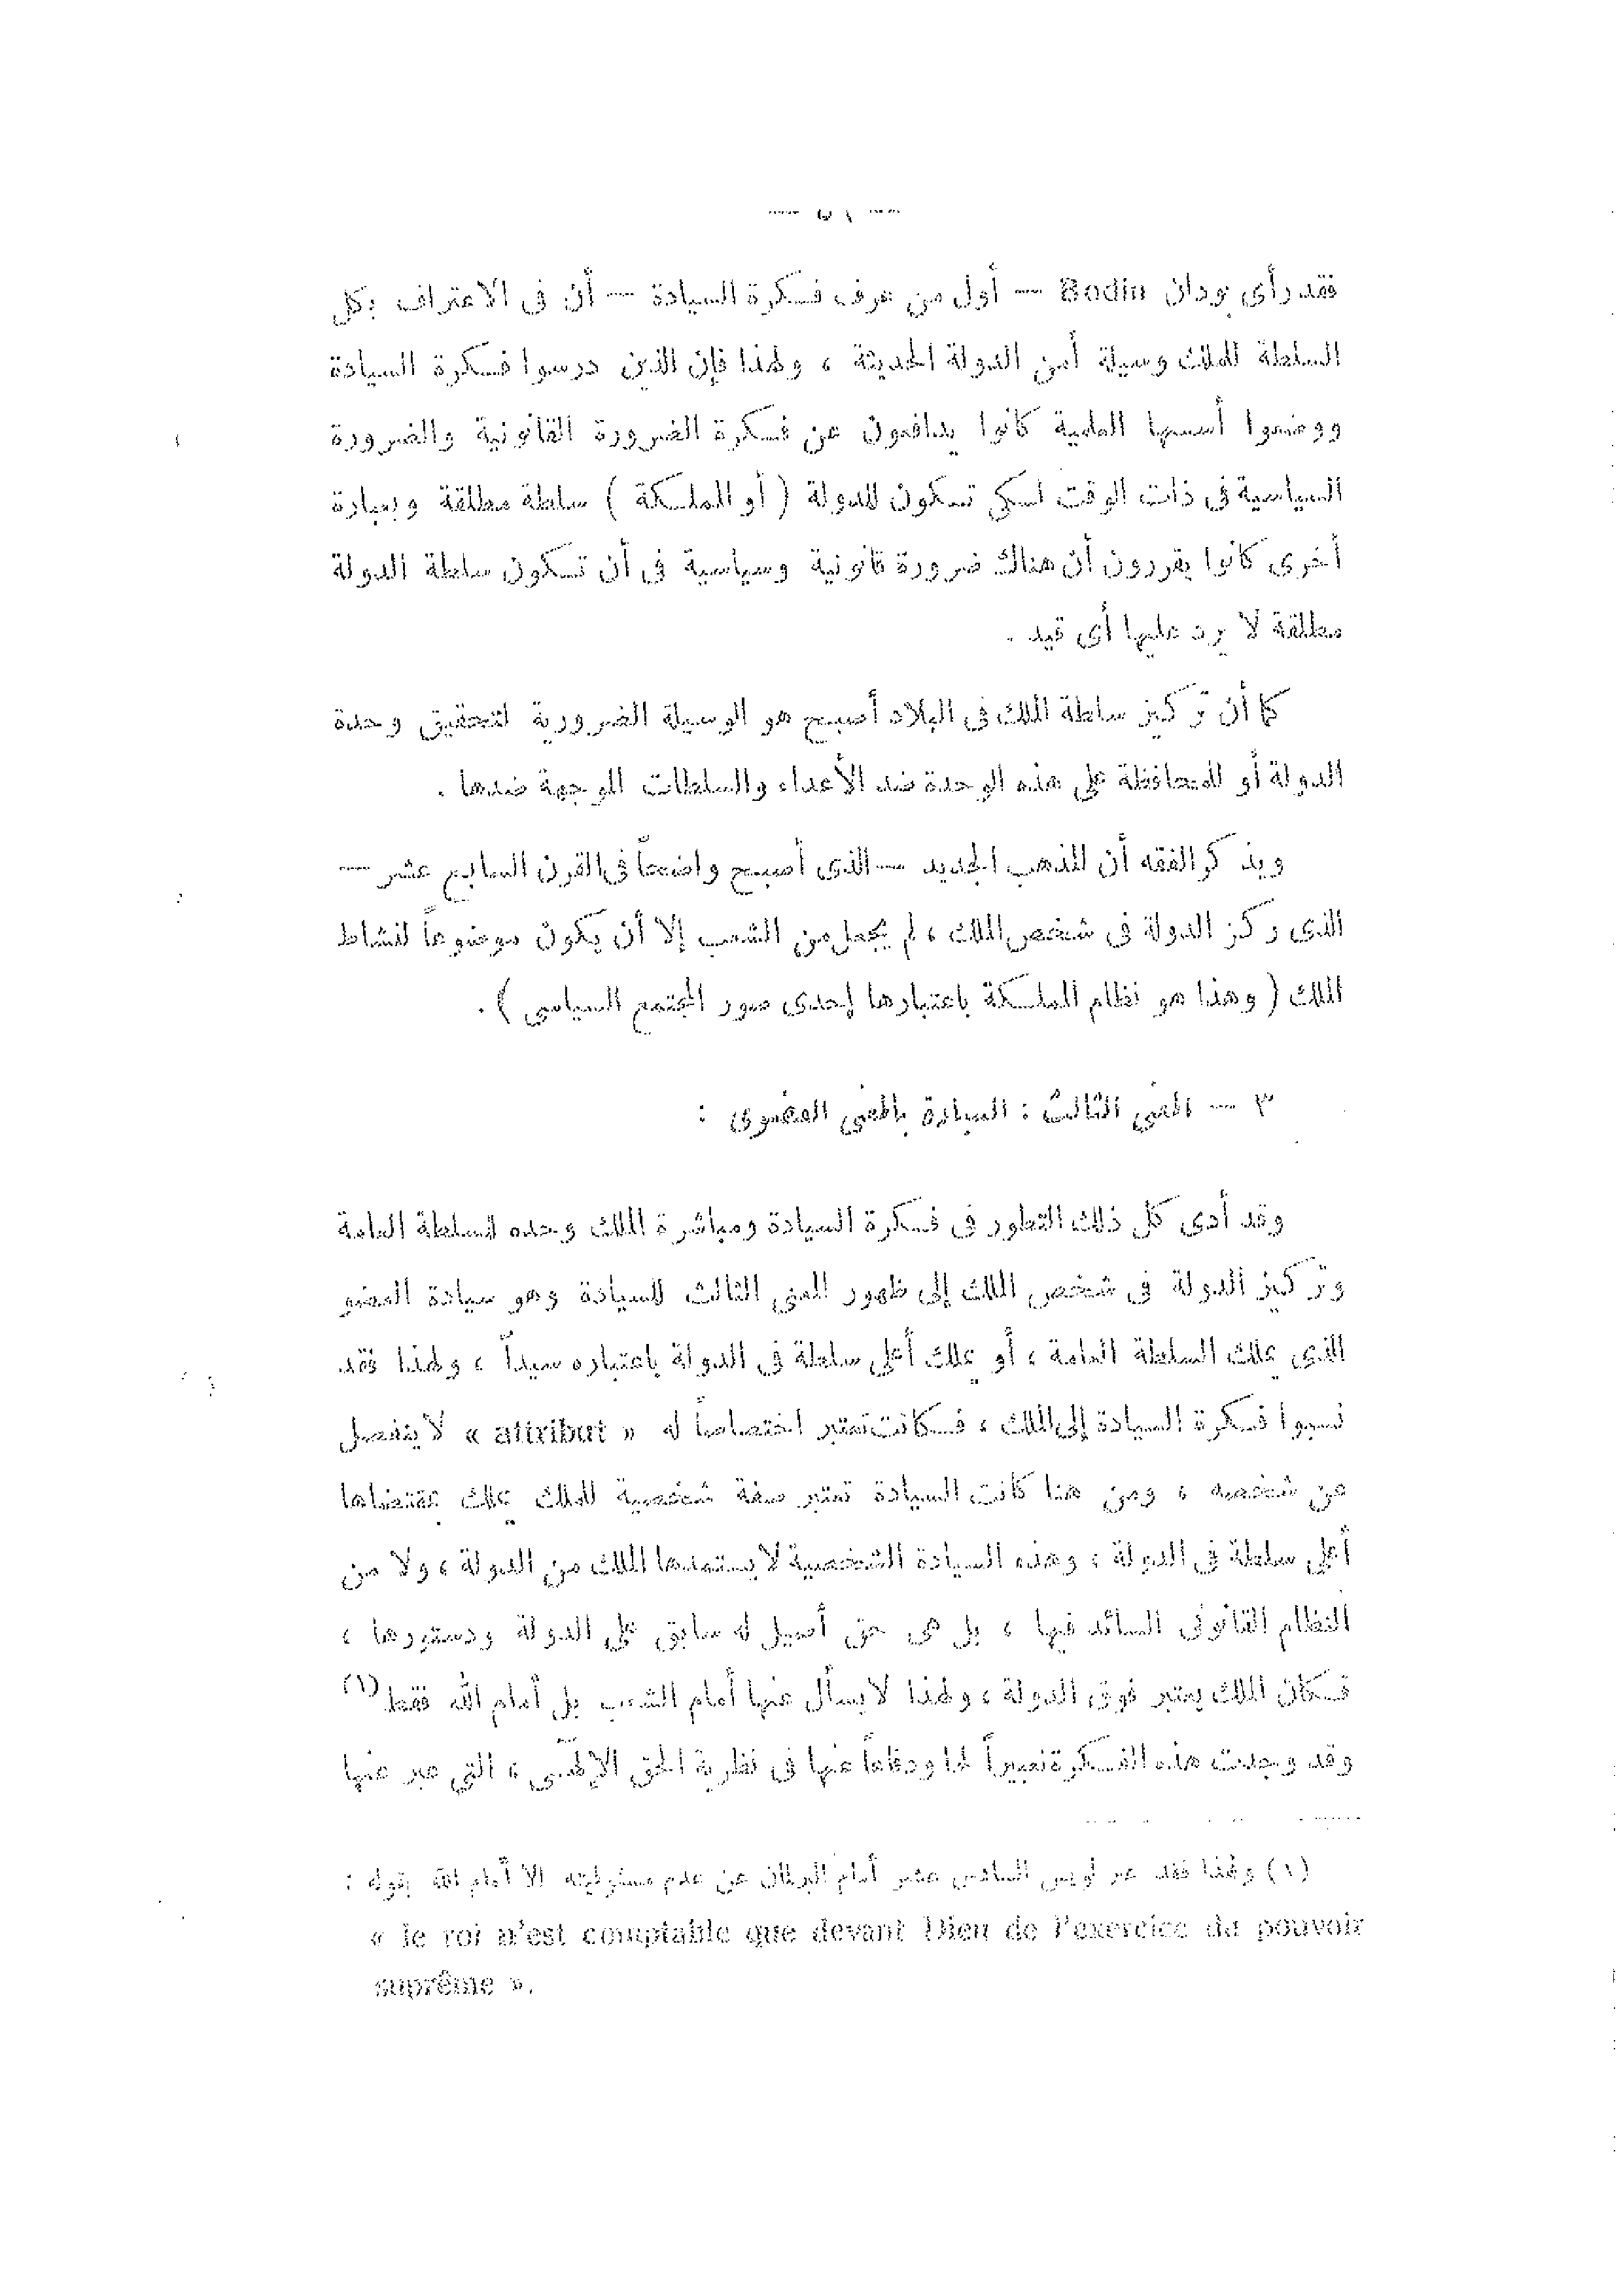 فقد رأى بودان Bodin — أول من عرف فكرة السيادة — أن فى الاعتراف بكل
السلطة للملك وسيلة أمن الدولة الحديثة ، ولهذا فإن الذين درسوا فكرة السيادة
ووضعوا أسسها العلمية كانوا يدافعون عن فكرة الضرورة القانونية والضرورة
السياسية فى ذات الوقت لكى تكون للدولة ( أو المملكة ) سلطة مطلقة وبعبارة
أخرى كانوا يقررون أن هناك ضرورة قانونية وسياسية فى أن تكون سلطة الدولة
مطلقة لا يرد عليها أى قيد .
كما أن تركيز سلطة الملك فى البلاد أصبح هو الوسيلة الضرورية لتحقيق وحدة
الدولة أو للمحافظة على هذه الوحدة ضد الأعداء والسلطات الموجهة ضدها .
ويذكر الفقه أن المذهب الجديد — الذى أصبح واضحاً فى القرن السابع عشر —
الذى ركز الدولة فى شخص الملك ، لم يجعل من الشعب إلا أن يكون موضوعاً لنشاط
الملك ( وهذا هو نظام المملكة باعتبارها إحدى صور المجتمع السياسى ) .
٣ — المعنى الثالث : السيادة بالمعنى العضوى :
وقد أدى كل ذلك التطور فى فكرة السيادة ومباشرة الملك وحده للسلطة العامة
وتركيز الدولة فى شخص الملك إلى ظهور المعنى الثالث للسيادة وهو سيادة العضو
الذى يملك السلطة العامة ، أو يملك أعلى سلطة فى الدولة باعتباره سيداً ، ولهذا فقد
نسبوا فكرة السيادة إلى الملك ، فكانت تعتبر اختصاصاً له « attribut » لا ينفصل
عن شخصه ، ومن هنا كانت السيادة تعتبر صفة شخصية للملك يملك بمقتضاها
أعلى سلطة فى الدولة ، وهذه السيادة الشخصية لا يستمدها الملك من الدولة ، ولا من
النظام القانونى السائد فيها ، بل هى حق أصيل له سابق على الدولة ودستورها ،
فكان الملك يعتبر فوق الدولة ، ولهذا لا يسأل عنها أمام الشعب بل أمام الله فقط (١)
وقد وجدت هذه الفكرة تعبيراً لها ودفاعاً عنها فى نظرية الحق الإلهى ، التى عبر عنها
(١) ولهذا فقد عبر لويس السادس عشر أمام البرلمان عن عدم مسئوليته إلا أمام الله بقوله :
« le roi n'est comptable que devant Dieu de l'exercice du pouvoir
suprême ».